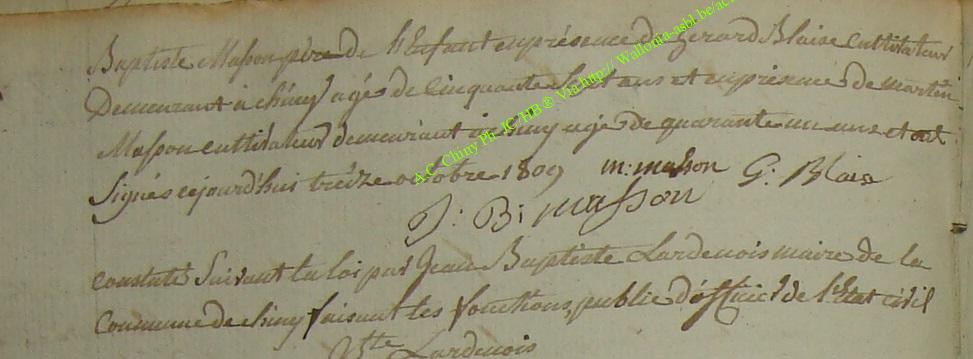 Baptiste Masson père de l'Enfant en présence de gerard Blaise cultivateur
Demeurant à chiny agé de Cinquante sept ans et en présence de martin
Masson cultivateur demeurant à chiny agé de quarante un ans et ont
Signés cejourd'hui treize octobre 1809 m: masson G: Blaise
J: B: masson
constaté Suivant la loi par Jean Baptiste Lardenois maire de la
Commune de chiny faisant les fonctions, public d'officier de l'Etat civil
Bte Lardenois
A.C. Chiny Ph. JC/HB ® Via http:// Wallonia-asbl.be/ac